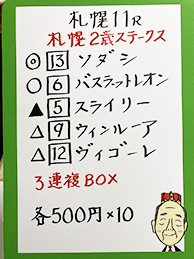 札幌11R
札幌2歳ステークス
◎ 13 ソダシ
○ 6 バスラットレオン
▲ 5 スライリー
△ 9 ウィンルーア
△ 12 ヴィゴーレ
3連複BOX
各500円×10